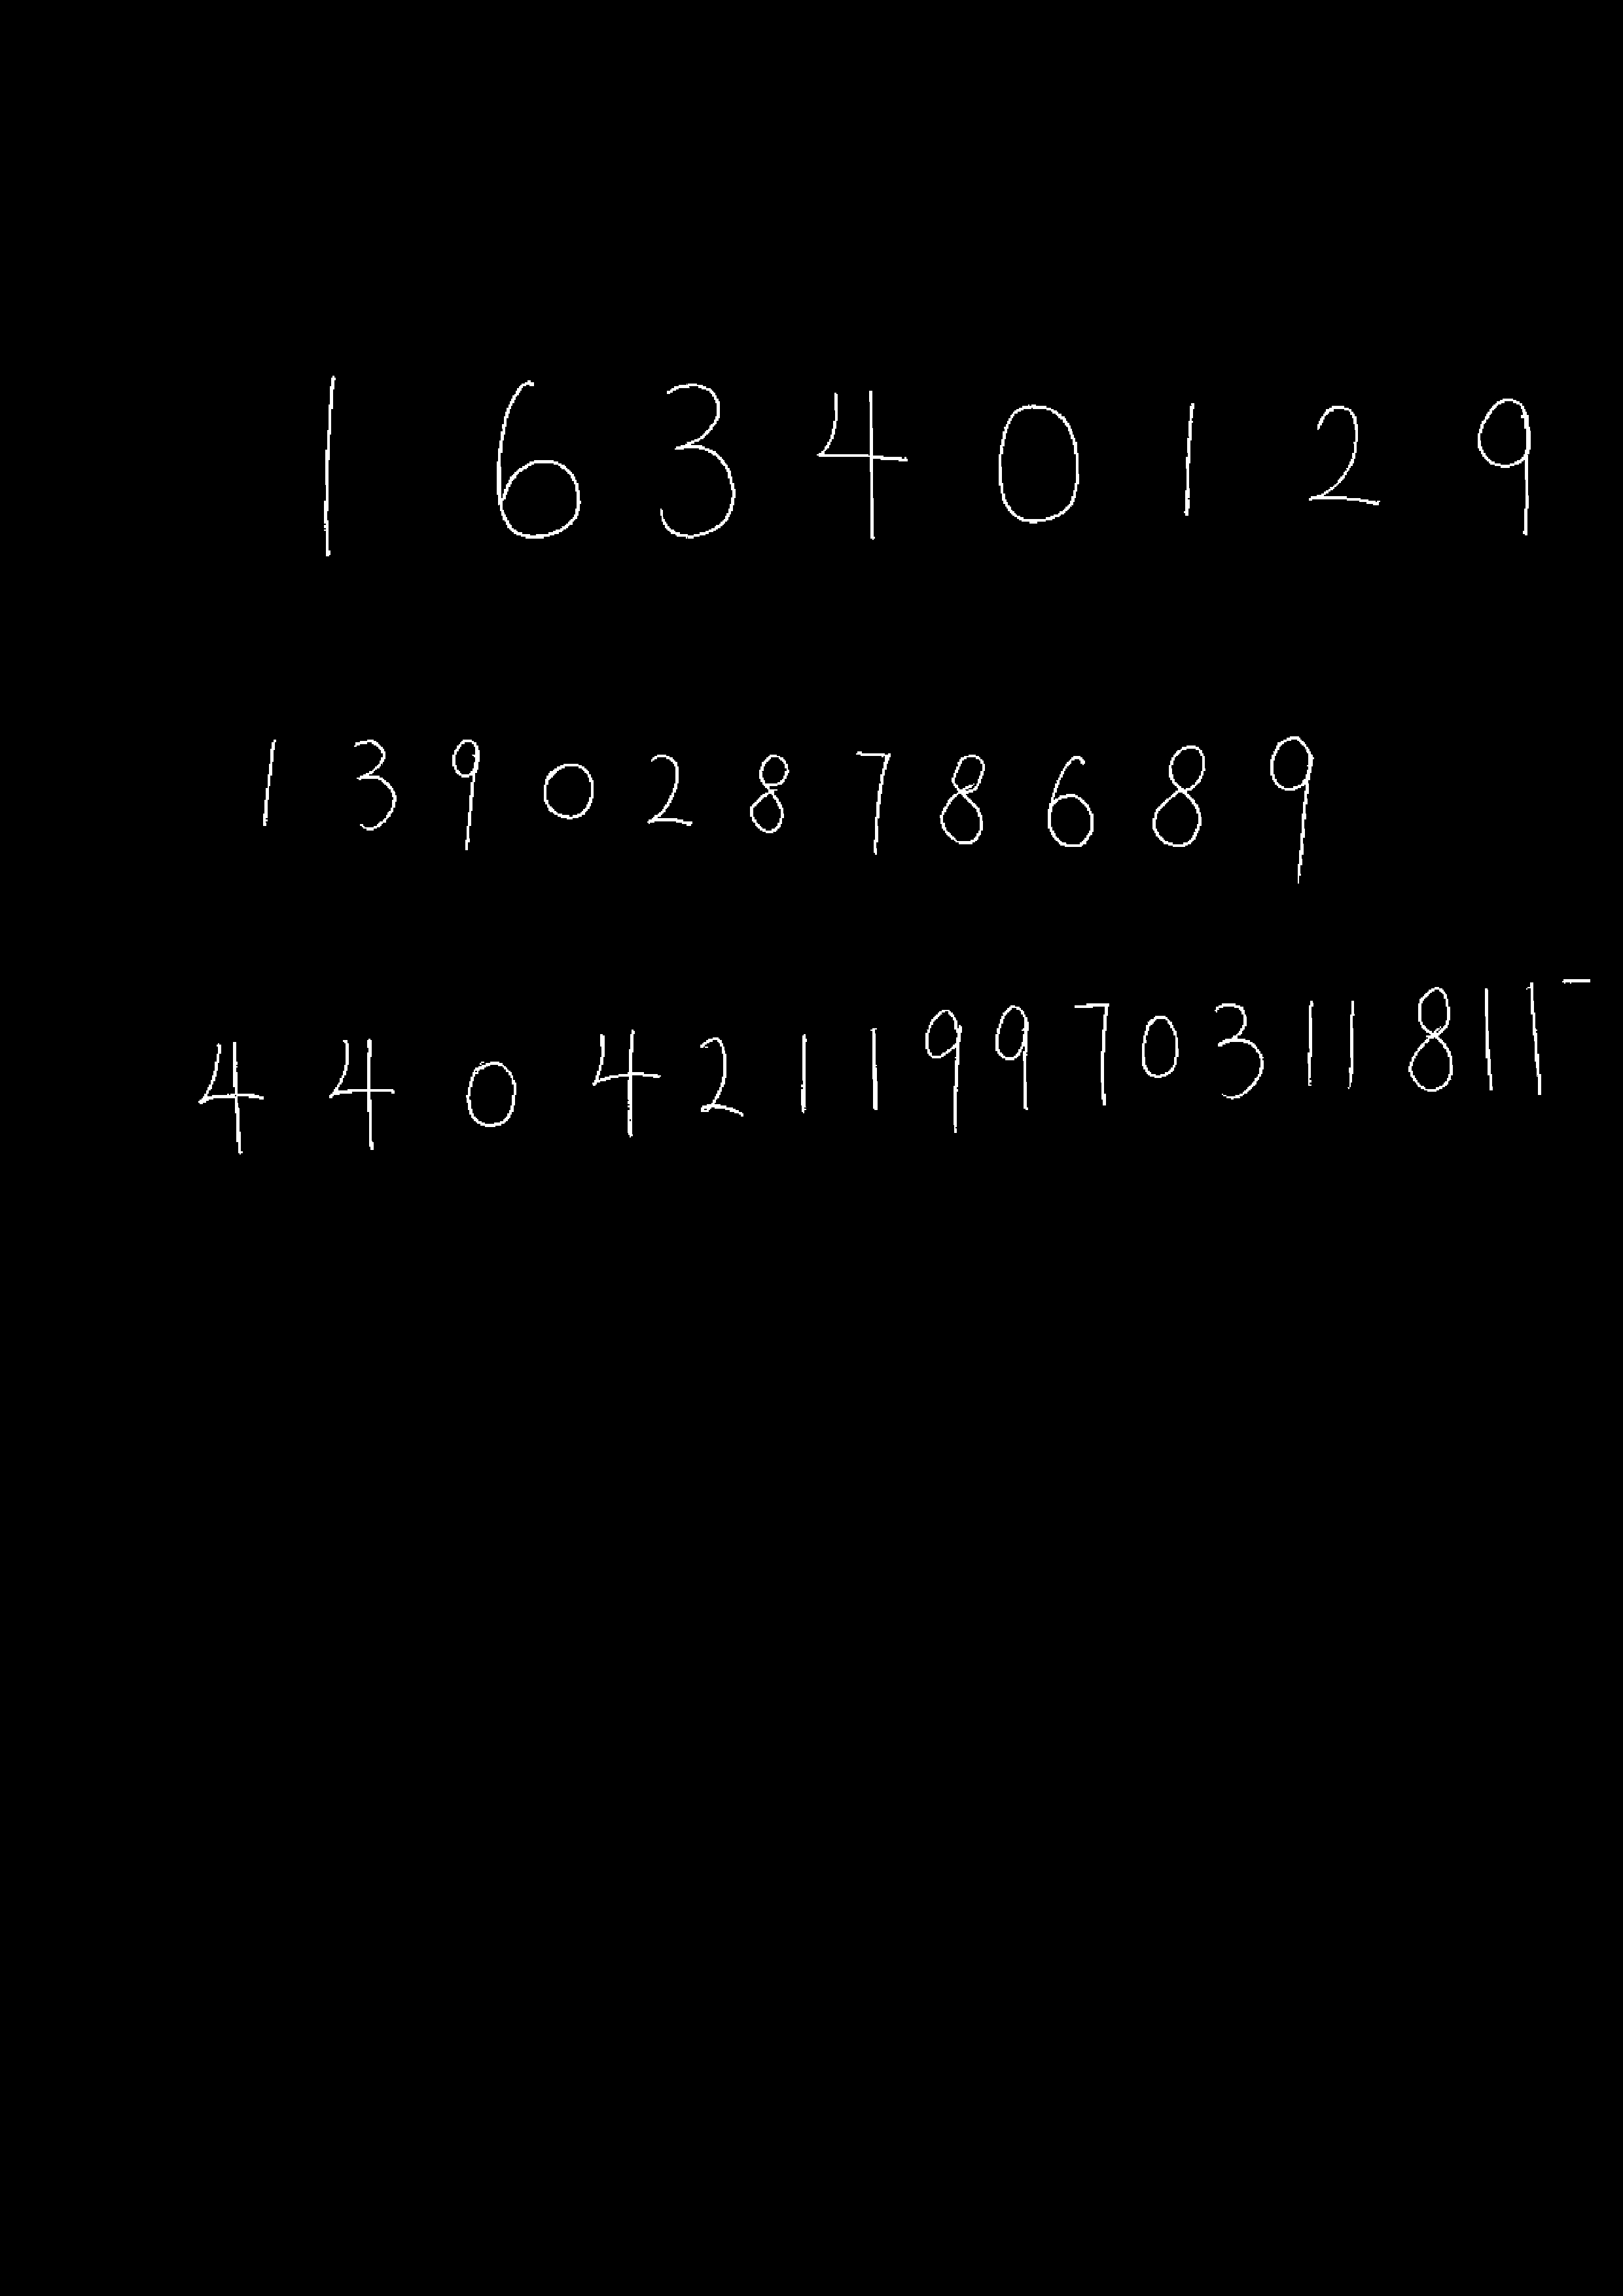 1 6 3 4 0 1 2 9
1 3 9 0 2 8 7 8 6 8 9
4 4 0 4 2 1 1 9 9 7 0 3 1 1 8 1 1